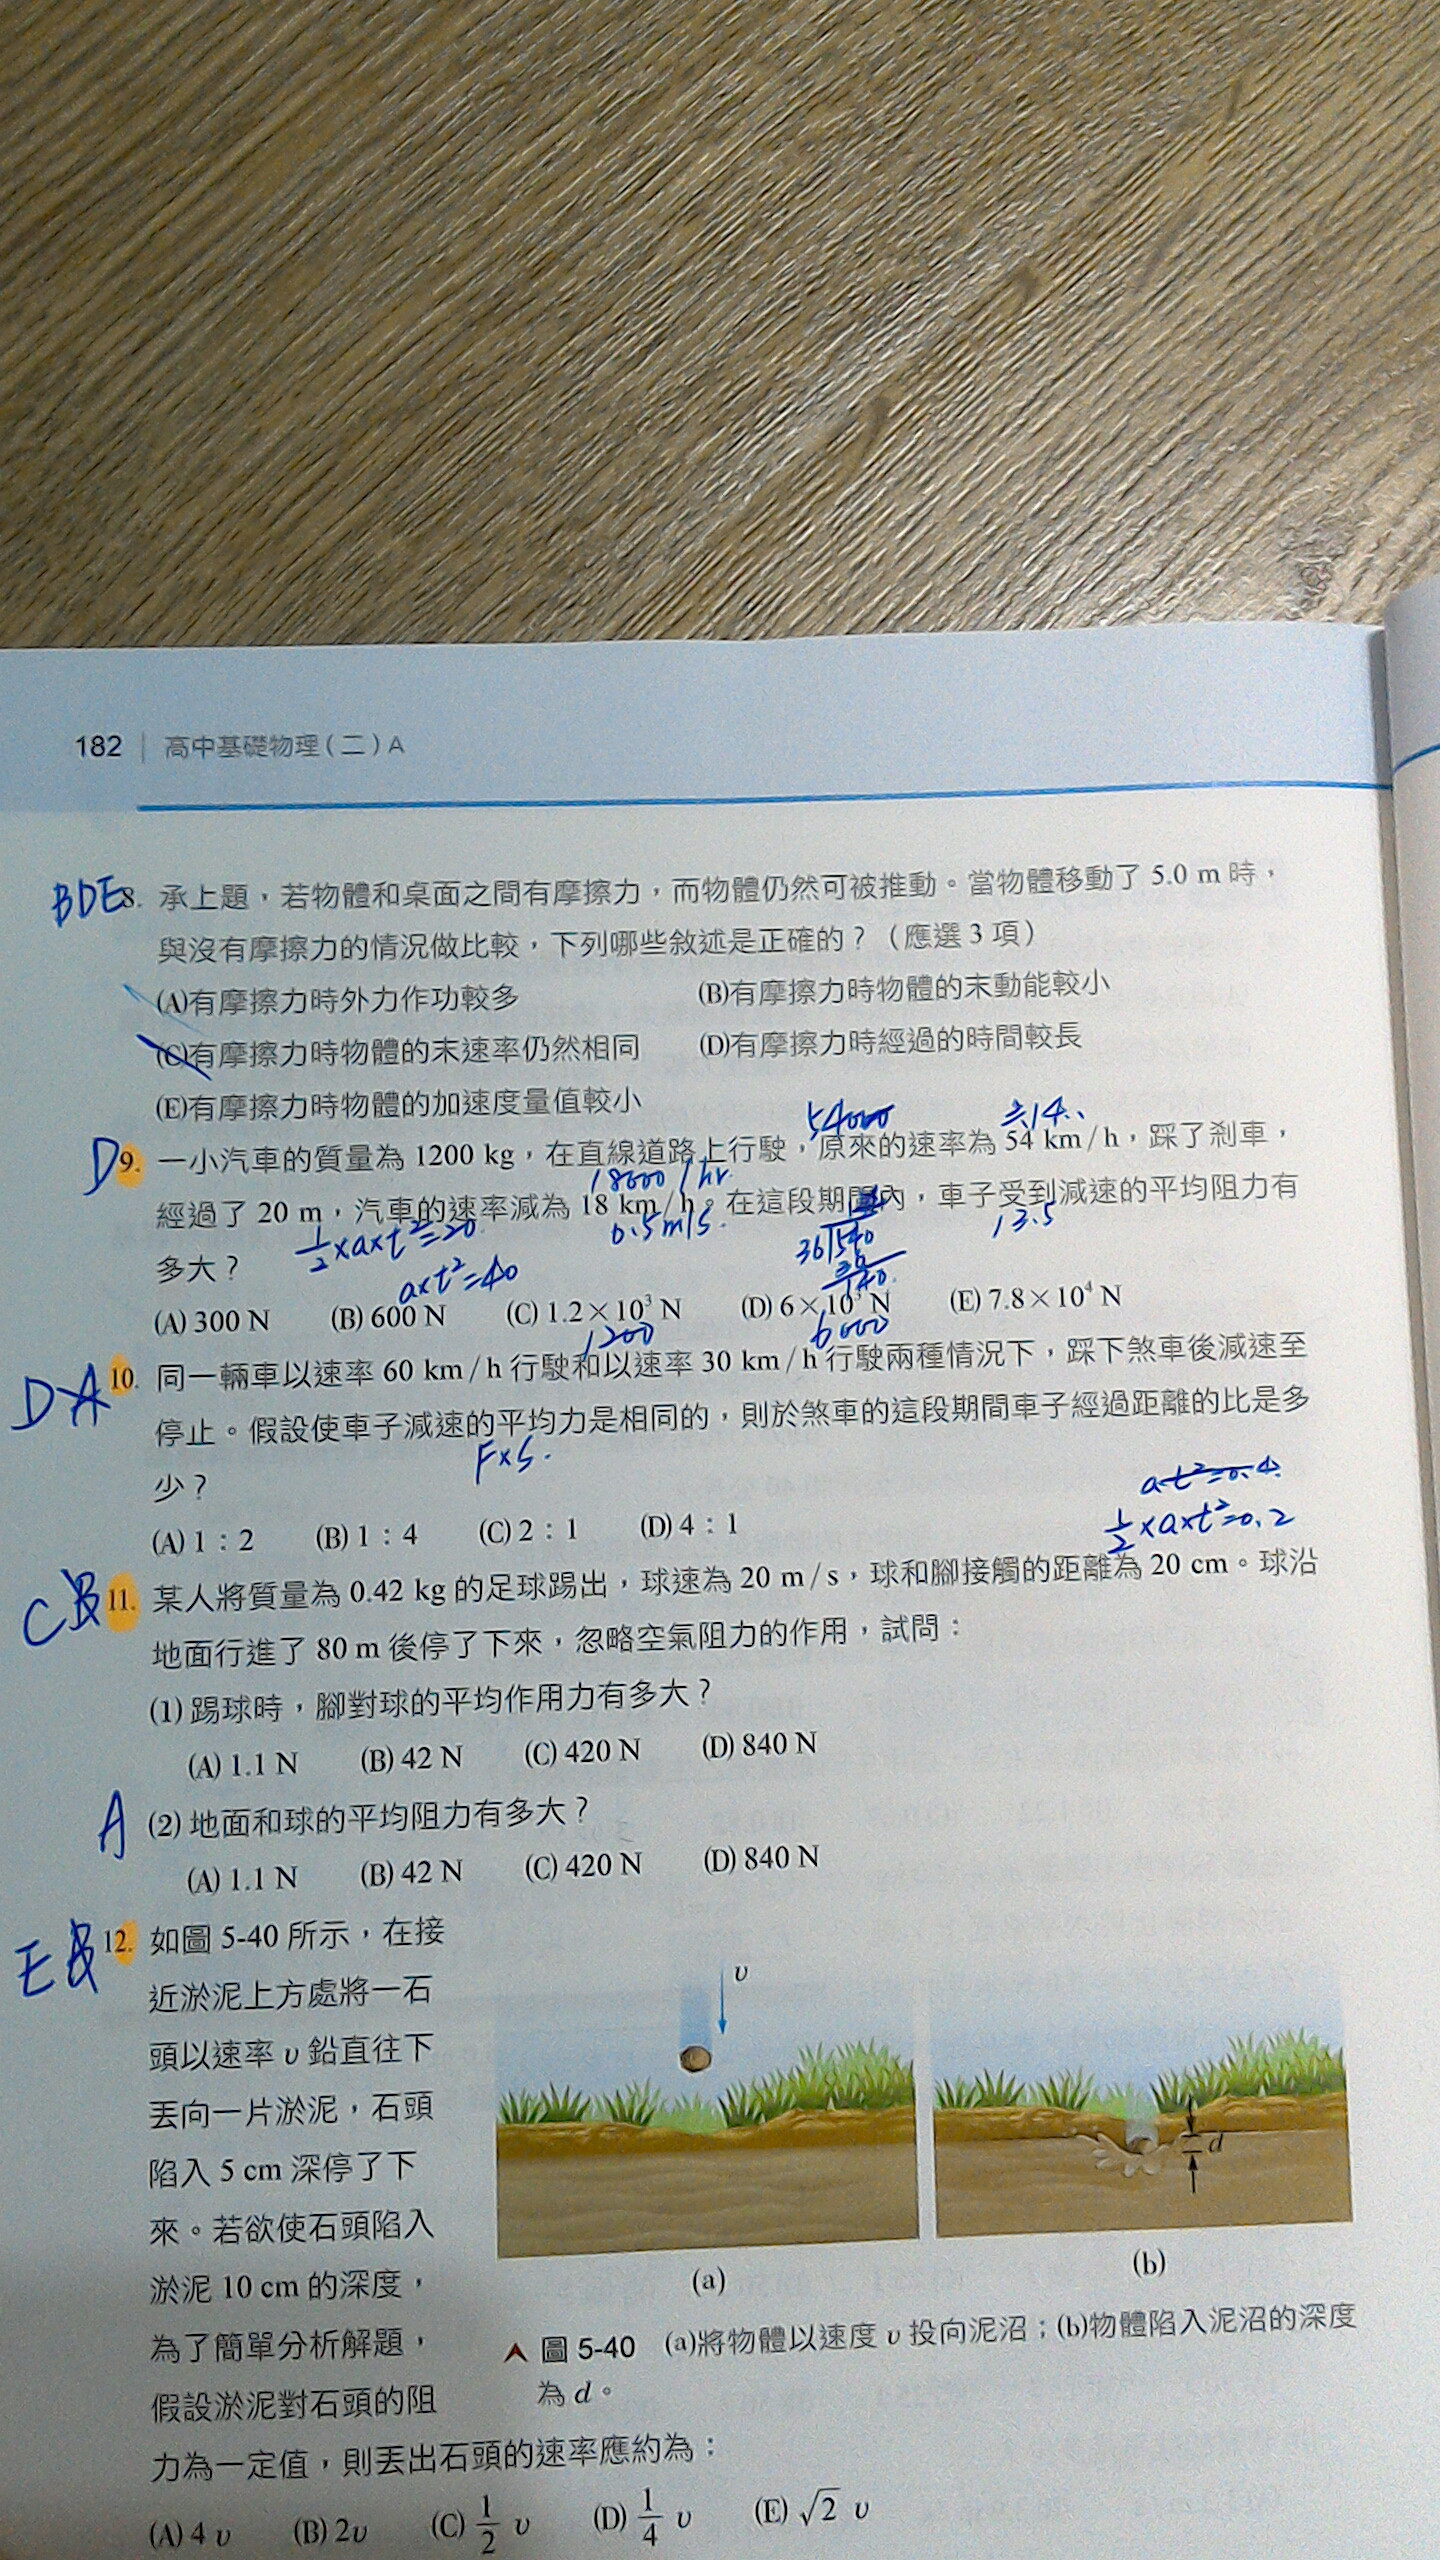 182 高中基礎物理(二)A
BDE 8. 承上題,若物體和桌面之間有摩擦力,而物體仍然可被推動。當物體移動了 5.0 m 時,
與沒有摩擦力的情況做比較,下列哪些敘述是正確的?(應選 3 項)
(A)有摩擦力時外力作功較多 (B)有摩擦力時物體的末動能較小
(C)有摩擦力時物體的末速率仍然相同 (D)有摩擦力時經過的時間較長
(E)有摩擦力時物體的加速度量值較小
54000 ≒14..
D 9. 一小汽車的質量為 1200 kg,在直線道路上行駛,原來的速率為 54 km / h,踩了剎車,
18000 / hr.
經過了 20 m,汽車的速率減為 18 km / h。在這段期間內,車子受到減速的平均阻力有
½×a×t²=20 0.5m/s. 36 540 13.5
多大?
a×t²=40 36 140
(A) 300 N (B) 600 N (C) 1.2×10³ N (D) 6×10³ N (E) 7.8×10⁴ N
1200 6000
D A 10. 同一輛車以速率 60 km / h 行駛和以速率 30 km / h 行駛兩種情況下,踩下煞車後減速至
停止。假設使車子減速的平均力是相同的,則於煞車的這段期間車子經過距離的比是多
F×S.
少?
at²=0.4
(A) 1:2 (B) 1:4 (C) 2:1 (D) 4:1
½×a×t²=0.2
C B 11. 某人將質量為 0.42 kg 的足球踢出,球速為 20 m / s,球和腳接觸的距離為 20 cm。球沿
地面行進了 80 m 後停了下來,忽略空氣阻力的作用,試問:
(1) 踢球時,腳對球的平均作用力有多大?
(A) 1.1 N (B) 42 N (C) 420 N (D) 840 N
A (2) 地面和球的平均阻力有多大?
(A) 1.1 N (B) 42 N (C) 420 N (D) 840 N
E 12. 如圖 5-40 所示,在接
近淤泥上方處將一石
頭以速率 υ 鉛直往下
丟向一片淤泥,石頭
陷入 5 cm 深停了下
來。若欲使石頭陷入
淤泥 10 cm 的深度,
為了簡單分析解題,
假設淤泥對石頭的阻
力為一定值,則丟出石頭的速率應約為:
(A) 4 υ (B) 2υ (C) 1/2 υ (D) 1/4 υ (E) √2 υ
υ
d
(a)
(b)
圖 5-40 (a)將物體以速度 υ 投向泥沼;(b)物體陷入泥沼的深度
為 d。